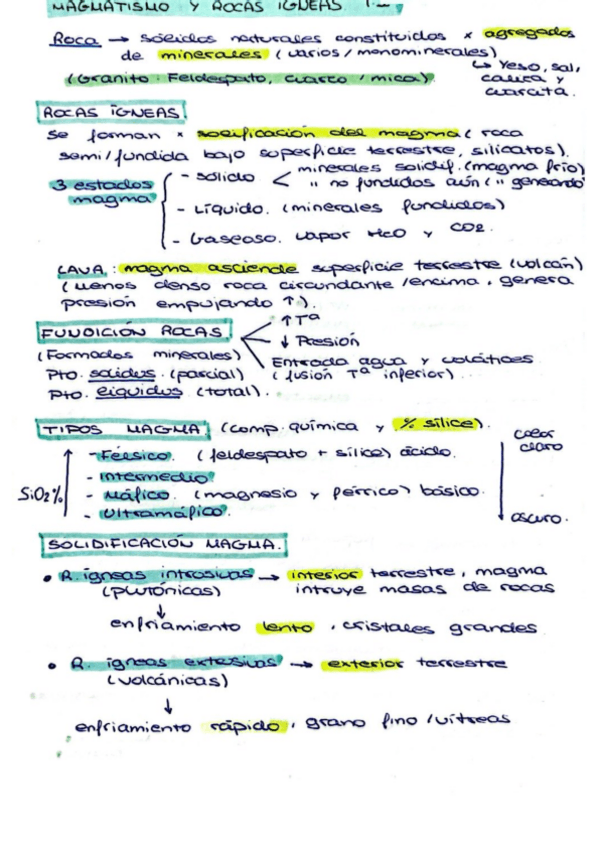 MAGMATISMO Y ROCAS IGNEAS. T
Roca → sólidos naturales constituidos x agregados
de minerales (varios / monominerales)
↳ Yeso, sal,
(Granito: Feldespato, cuarzo, mica) caliza y
cuarcita.
ROCAS ÍGNEAS
Se forman x solificación del magma (roca
semi/fundida bajo superficie terrestre, silicatos).
3 estados magma
- sólido < minerales solidif. (magma frío)
" no fundidos aún (" generando
- Líquido. (minerales fundidos)
- Gaseoso. Vapor H2O y CO2.
LAVA: magma asciende superficie terrestre (volcán)
(menos denso roca circundante / encima, genera
presión empujando ↑).
FUNDICIÓN ROCAS
↑ Tª
↓ Presión
Entrada agua y volátiles
(fusión Tª inferior).
(Formados minerales)
Pto. solidus. (parcial)
Pto. liquidus (total).
TIPOS MAGMA (comp. química y % sílice).
SiO2 %
- Félsico. (feldespato + sílice) ácido.
- Intermedio
- Máfico. (magnesio y férrico) básico.
- Ultramáfico.
color claro
oscuro.
SOLIDIFICACIÓN MAGMA.
• R. ígneas intrusivas → interior terrestre, magma
(plutónicas) intruye masas de rocas
↓
enfriamiento lento, cristales grandes.
• R. ígneas extrusivas → exterior terrestre
(volcánicas)
↓
enfriamiento rápido, grano fino / vítreas